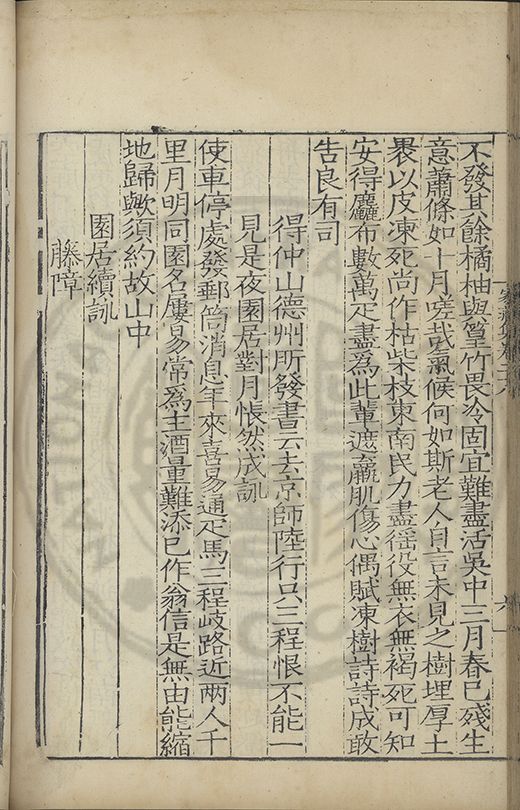 不發其餘橘柚與篁竹畏冷固宜難盡活吳中三月春已殘生
意蕭條如十月嗟哉氣候何如斯老人自言未見之樹埋厚土
褁以皮凍死尚作枯柴枝東南民力盡徭役無衣無褐死可知
安得麤布數萬疋盡為此輩遮羸肌傷心偶賦凍樹詩詩成敢
告良有司
得仲山德州所發書云去京師陸行只三程恨不能一
見是夜園居對月悵然成詠
使車停處發郵筒消息年來喜易通疋馬三程岐路近兩人千
里月明同園名屢易常為主酒量難添已作翁信是無由能縮
地歸歟須約故山中
園居續詠
藤障